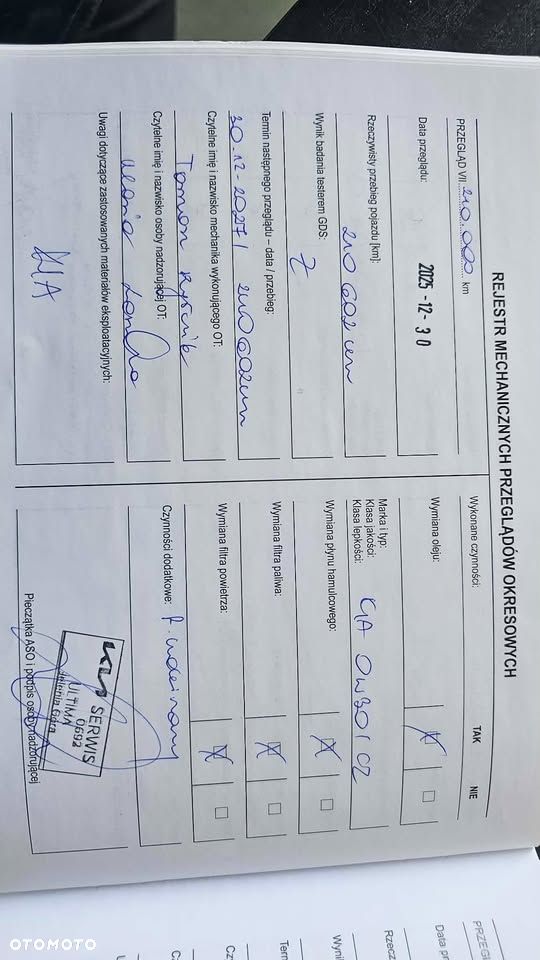 REJESTR MECHANICZNYCH PRZEGLĄDÓW OKRESOWYCH
PRZEGLĄD VII 210.000 km
Data przeglądu:
2025-12-30
Rzeczywisty przebieg pojazdu [km]:
210 602 km
Wynik badania testerem GDS:
Termin następnego przeglądu – data / przebieg:
30.12.2027 / 240 602 km
Czytelne imię i nazwisko mechanika wykonującego OT:
Czytelne imię i nazwisko osoby nadzorującej OT:
Uwagi dotyczące zastosowanych materiałów eksploatacyjnych:
KIA
Wykonane czynności: TAK NIE
Wymiana oleju:
Marka i typ:
Klasa jakości: KIA 0W30
Klasa lepkości:
Wymiana płynu hamulcowego:
Wymiana filtra paliwa:
Wymiana filtra powietrza:
Czynności dodatkowe:
KIA SERWIS
ULTIMA 0692
Jelenia Góra
Pieczątka ASO i podpis osoby nadzorującej
PRZEGL
Data pr
Rzecz
Wyni
Term
Cz
C
U
OTOMOTO